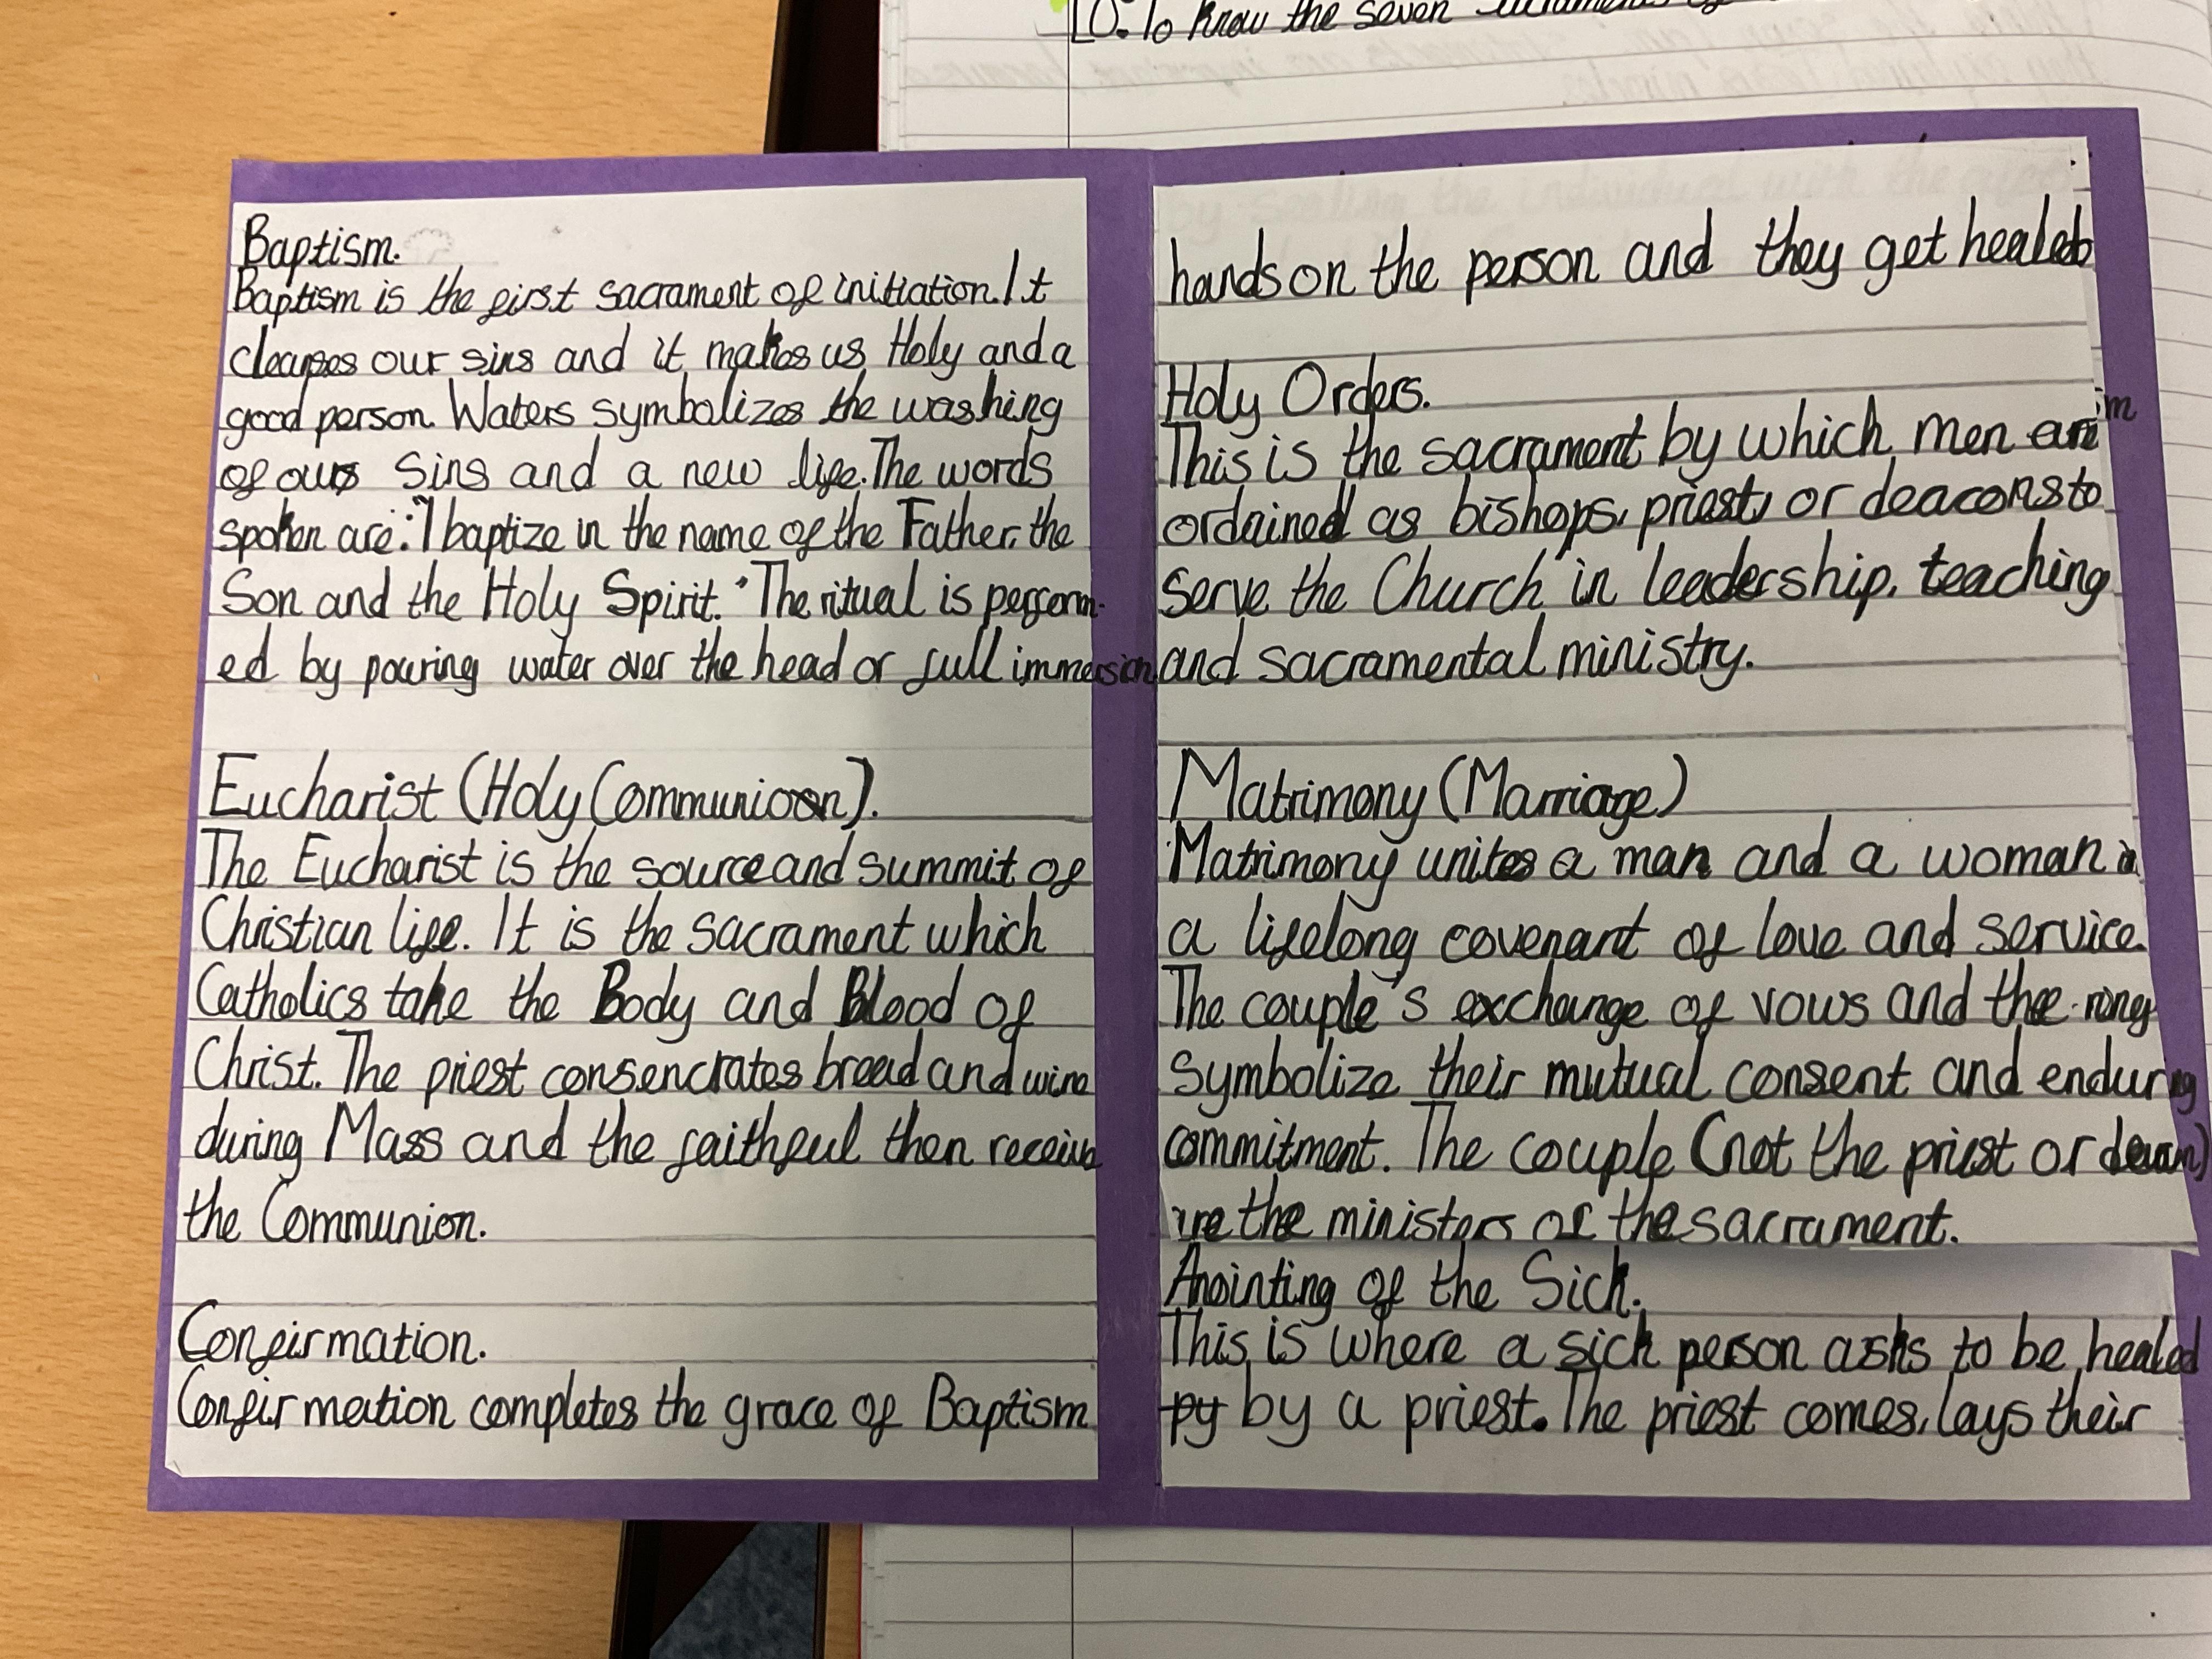 LO: To Know the seven
Baptism.
Baptism is the first sacrament of initiation. It
cleanses our sins and it makes us Holy and a
good person. Waters symbolizes the washing
of our sins and a new life. The words
spoken are: "I baptize in the name of the Father, the
Son and the Holy Spirit." The ritual is perform-
ed by pouring water over the head or full immersion
Eucharist (Holy Communion).
The Eucharist is the source and summit of
Christian life. It is the sacrament which
Catholics take the Body and Blood of
Christ. The priest consencrates bread and wine
during Mass and the faithful then receive
the Communion.
Confirmation.
Confirmation completes the grace of Baptism
hands on the person and they get healed
Holy Orders.
This is the sacrament by which men are
ordained as bishops, priest, or deacons to
serve the Church in leadership, teaching
and sacramental ministry.
Matrimony (Marriage)
Matrimony unites a man and a woman in
a lifelong covenant of love and service.
The couple's exchange of vows and the ring
symbolize their mutual consent and enduring
commitment. The couple (not the priest or deacon)
are the ministers of the sacrament.
Anointing of the Sick.
This is where a sick person asks to be healed
py by a priest. The priest comes, lays their